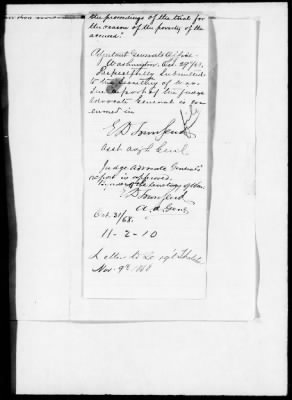 the proceedings of the trial for
the reason of the poverty of the
accused."
Adjutant General's Office
Washington, Oct. 29th/68.
Respectfully submitted
to the Secretary of War
The report of the Judge
Advocate General is con
curred in
E D Townsend
Asst Adjt Genl
Judge Advocate General's
report is approved.
By order of the Secretary of War:
E D Townsend
A. A. Genl
Oct. 31/68.
11-2-10
Letter to
Nov. 9th 1868